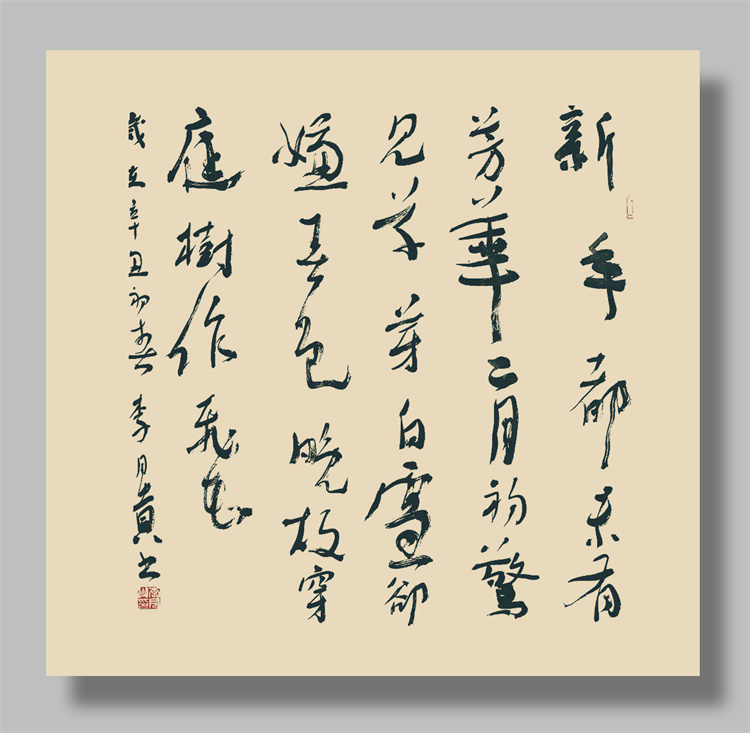 新年都未有
芳華二月初驚
見草芽白雪卻
嫌春色晚故穿
庭樹作飛花
歲在辛丑初春 李月书